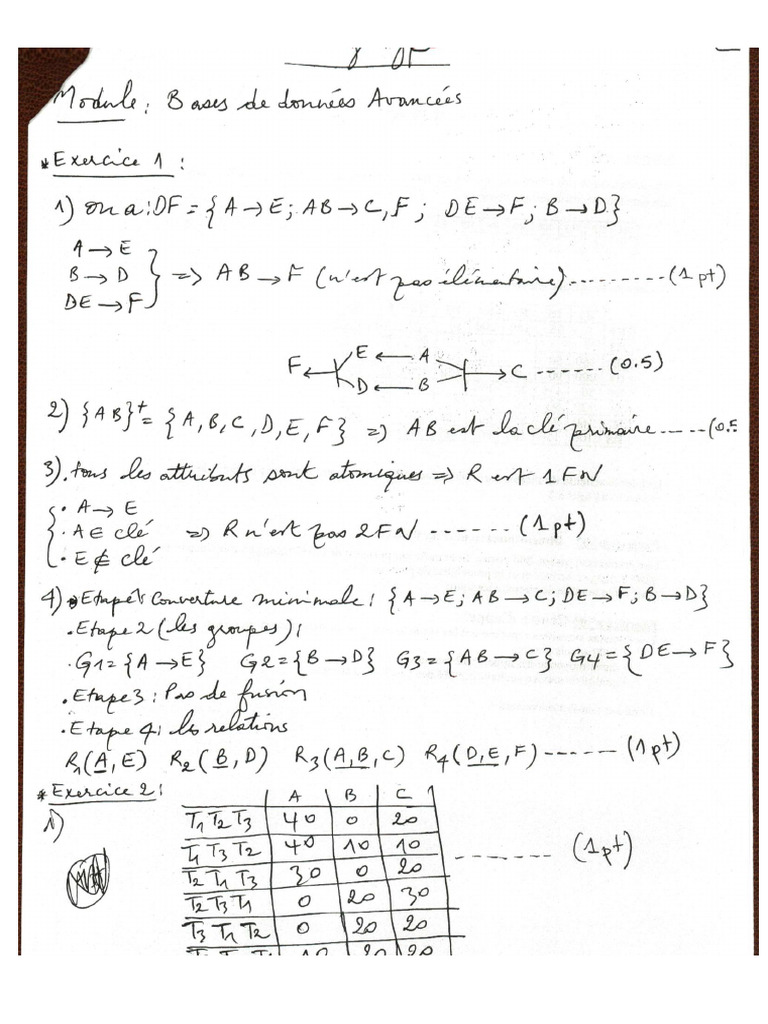 Module : Bases de données Avancées
* Exercice 1 :
1) on a : DF = { A → E ; AB → C, F ; DE → F ; B → D }
A → E
B → D
DE → F
=> AB → F (n'est pas élémentaire) --------- (1 pt)
F ← E ← A
D ← B → C ------ (0.5)
2) {AB}+ = {A, B, C, D, E, F} => AB est la clé primaire ---- (0.5
3) . tous les attributs sont atomiques => R est 1FN
. A → E
. A ∈ clé => R n'est pas 2FN ------ (1pt)
. E ∉ clé
4) . Etape1 : Couverture minimale : { A → E ; AB → C ; DE → F ; B → D }
. Etape 2 (les groupes) :
. G1 = {A → E} G2 = {B → D} G3 = {AB → C} G4 = {DE → F}
. Etape 3 : Pas de fusion
. Etape 4 : les relations
R1(A, E) R2(B, D) R3(A, B, C) R4(D, E, F) ------ (1pt)
* Exercice 2 :
1)
A B C
T1 T2 T3 40 0 20
T1 T3 T2 40 10 10
T2 T1 T3 30 0 20
------- (1pt)
T2 T3 T1 0 20 30
T3 T1 T2 0 20 20